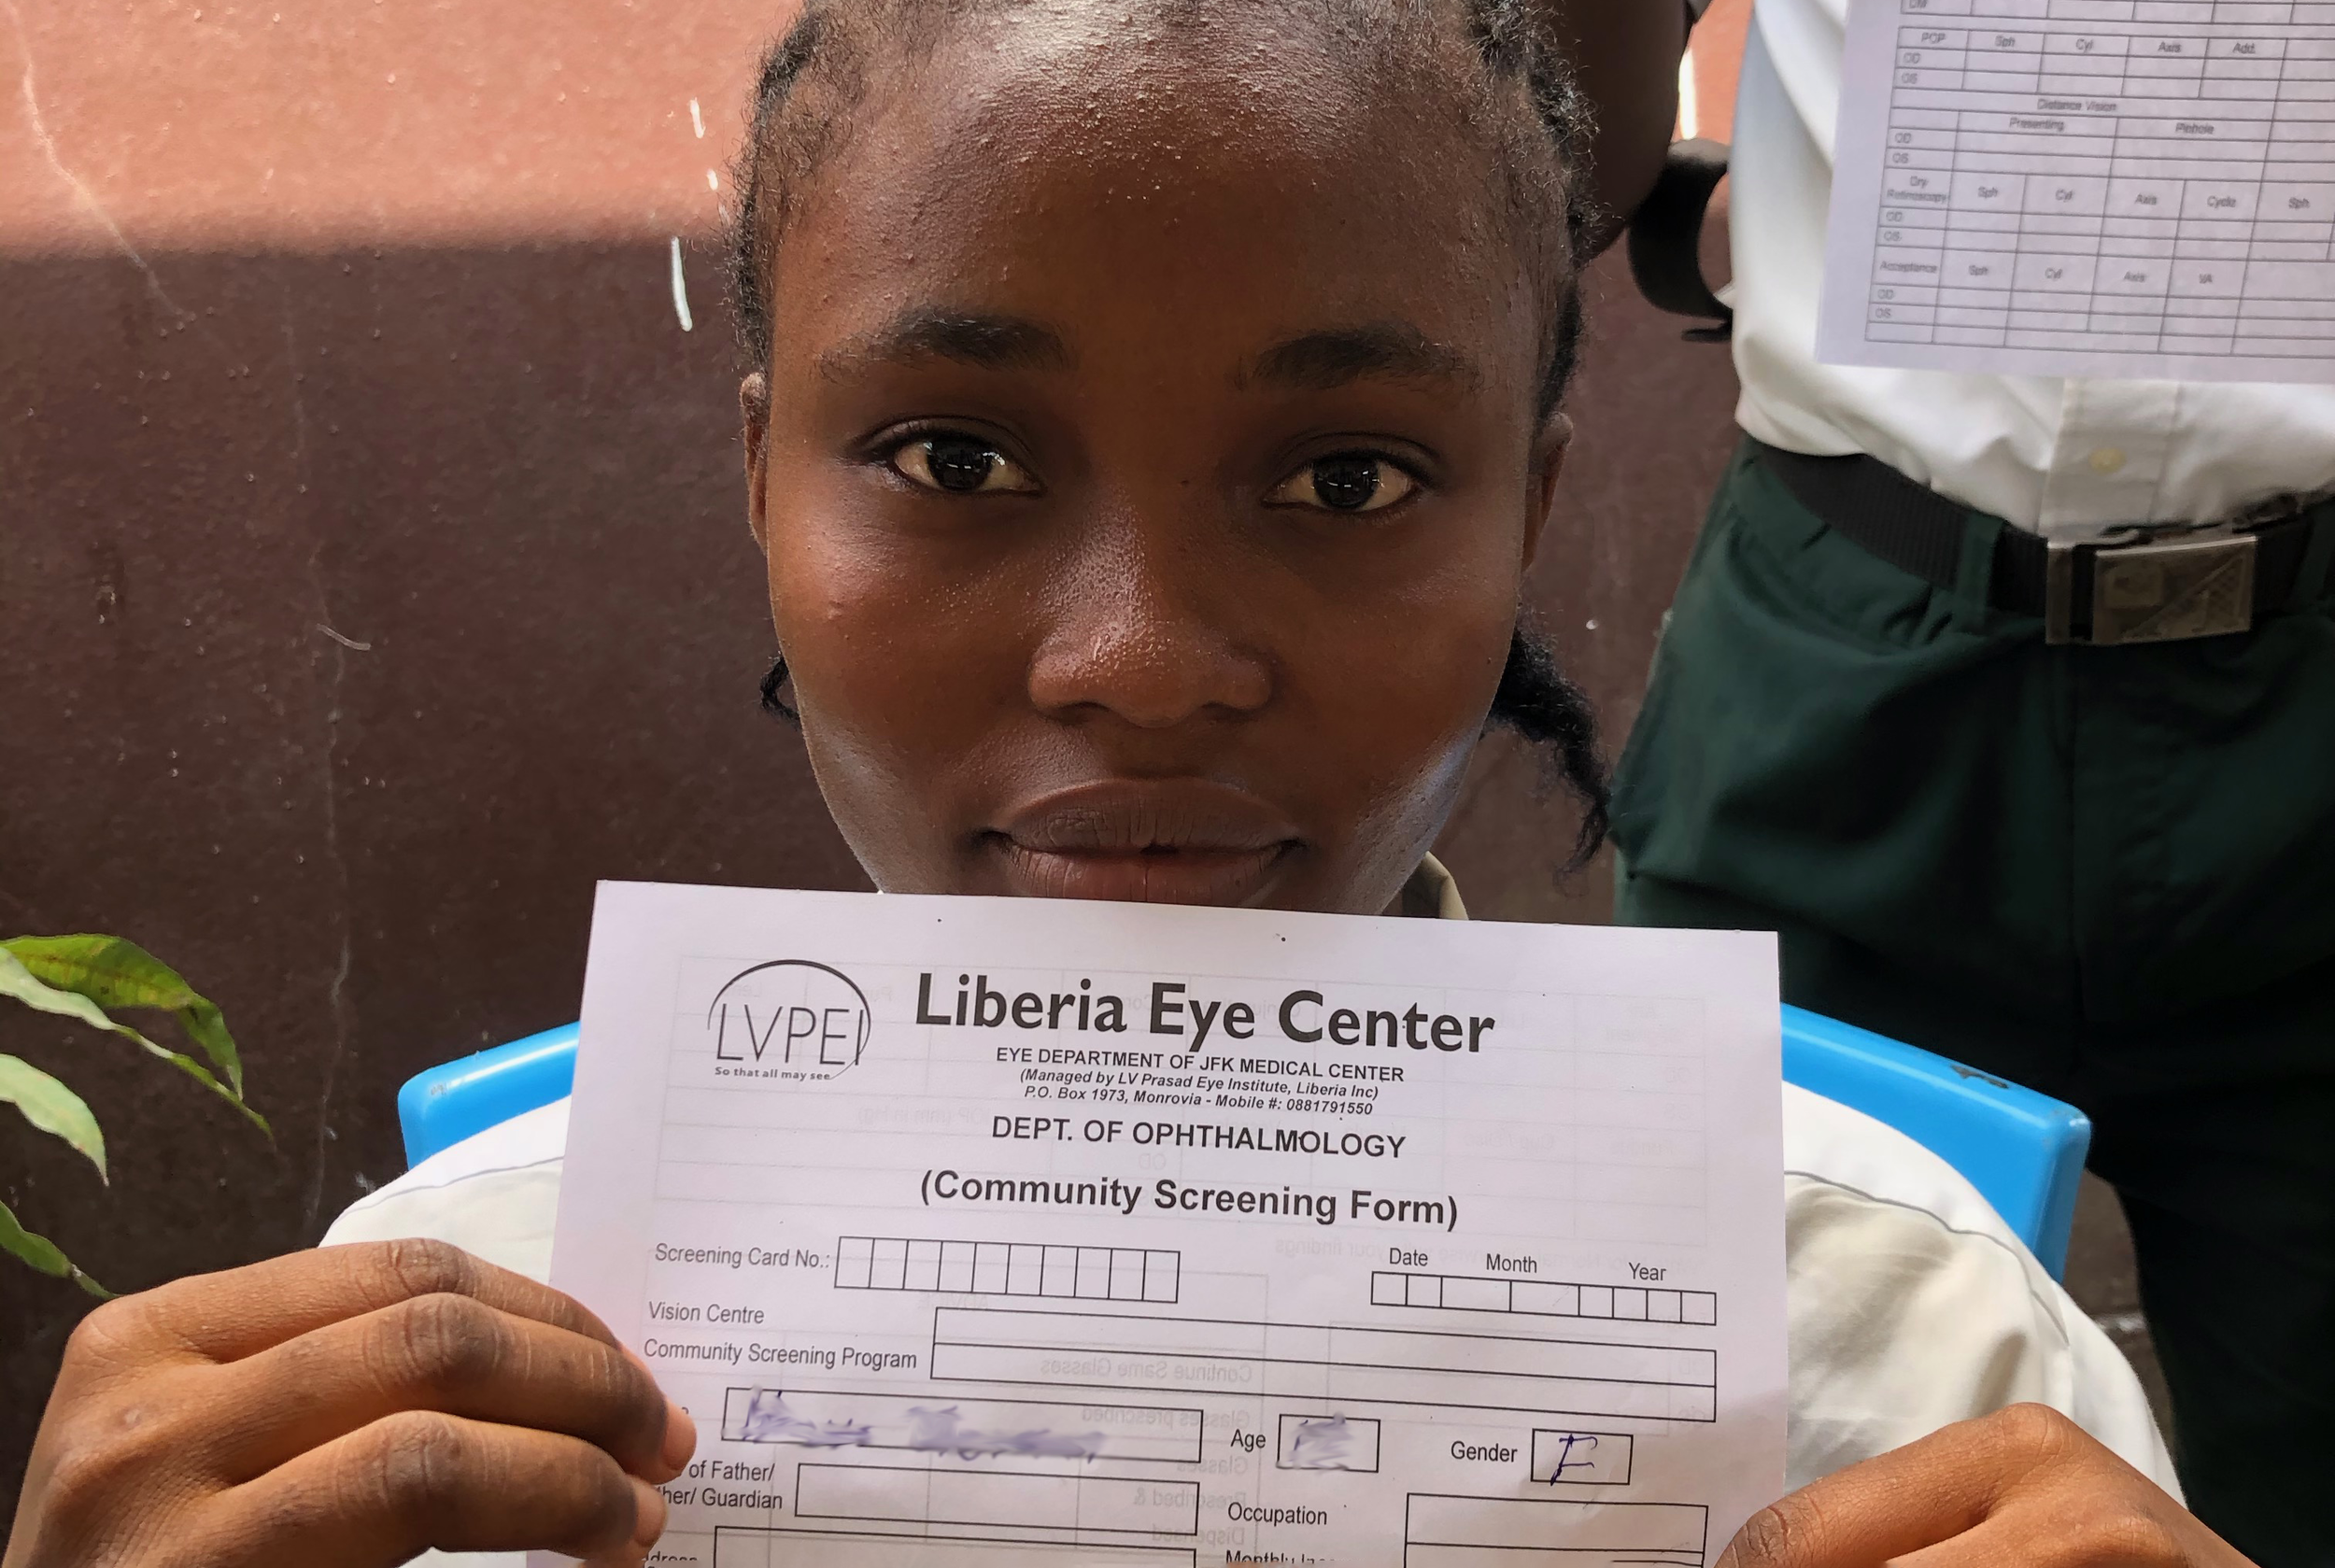 PGP Sph Cyl Axis Add.
OD
OS
Distance Vision
Presenting Pinhole
OD
OS
Dry Retinoscopy Sph Cyl Axis Cyclo Sph
OD
OS
Acceptance Sph Cyl Axis VA
OD
OS
LVPEI
So that all may see
Liberia Eye Center
EYE DEPARTMENT OF JFK MEDICAL CENTER
(Managed by LV Prasad Eye Institute, Liberia Inc)
P.O. Box 1973, Monrovia - Mobile #: 0881791550
DEPT. OF OPHTHALMOLOGY
(Community Screening Form)
Screening Card No.:
Date Month Year
Vision Centre
Community Screening Program
Age
Gender F
of Father/
her/ Guardian
Occupation
Continue Same Glasses
Glasses prescribed
Glasses
Prescribed &
Dispensed